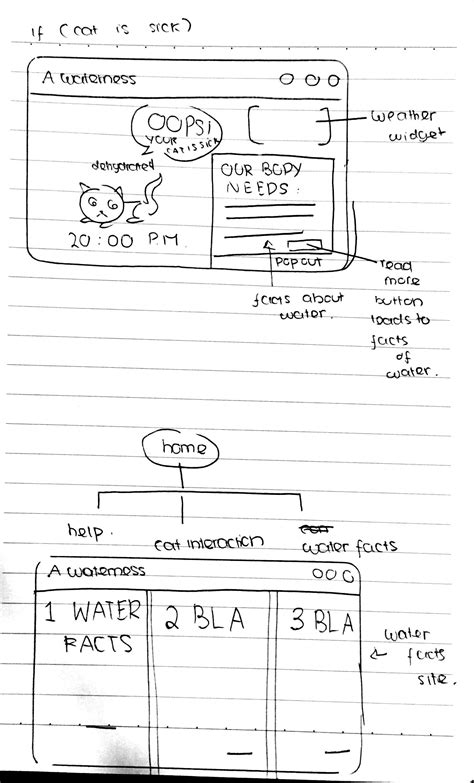 if (cat is sick)
A waterness
OOPS!
YOUR
CAT IS SICK
weather
widget
dehydrated
OUR BODY
NEEDS:
20:00 P.M.
pop out
facts about
water.
read
more
button
leads to
facts
of
water.
home
help.
cat interaction
water facts
A waterness
1 WATER
FACTS
2 BLA
3 BLA
water
facts
site.